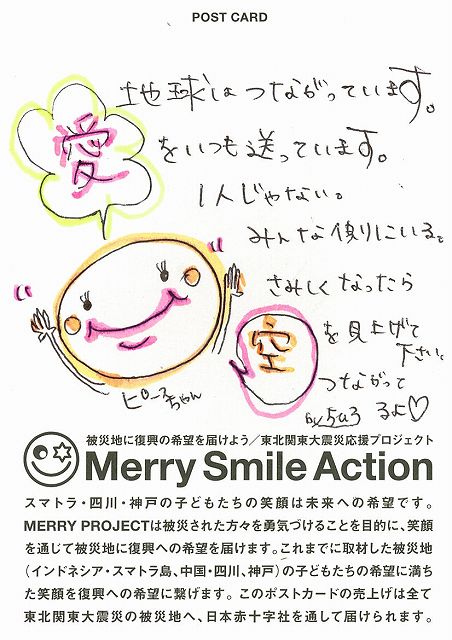 POST CARD
地球はつながっています。
愛
をいつも送っています。
1人じゃない。
みんな傍りにいる。
さみしくなったら
空
を見上げて
下さい。
つながって
るよ♡
ピースちゃん
被災地に復興の希望を届けよう／東北関東大震災応援プロジェクト
Merry Smile Action
スマトラ・四川・神戸の子どもたちの笑顔は未来への希望です。
MERRY PROJECTは被災された方々を勇気づけることを目的に、笑顔
を通じて被災地に復興への希望を届けます。これまでに取材した被災地
（インドネシア・スマトラ島、中国・四川、神戸）の子どもたちの希望に満ち
た笑顔を復興への希望に繋げます。このポストカードの売上げは全て
東北関東大震災の被災地へ、日本赤十字社を通して届けられます。